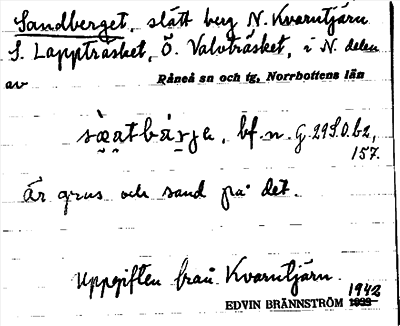 Sandberget, slätt berg N. Kvarntjärn
S. Lappträsket, Ö. Valvträsket, i N. delen
av
Råneå sn och tg, Norrbottens län
bf. n. G. 29 S.O. b2,
157.
Är grus och sand på det.
Uppgiften från Kvarntjärn.
1942
EDVIN BRÄNNSTRÖM 1933